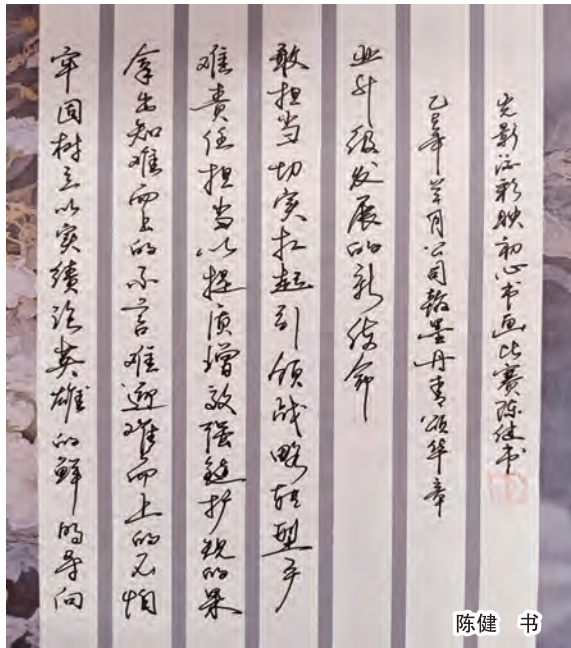 牢固树立以实绩论英雄的鲜明导向
拿出知难而上的不言难迎难而上的不怕
难责任担当以提质增效强链扩规的果
敢担当切实扛起引领战略转型产
业升级发展的新使命
乙巳年月公司翰墨丹青颂华章
光影流彩映初心书画比赛陈健书
陈健 书